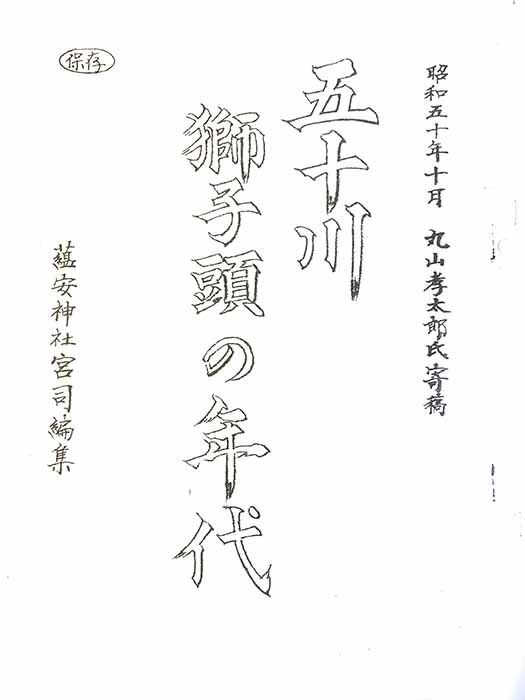 昭和五十年十月 丸山孝太郎氏寄稿
五十川
獅子頭の年代
蘊安神社宮司編集
保存